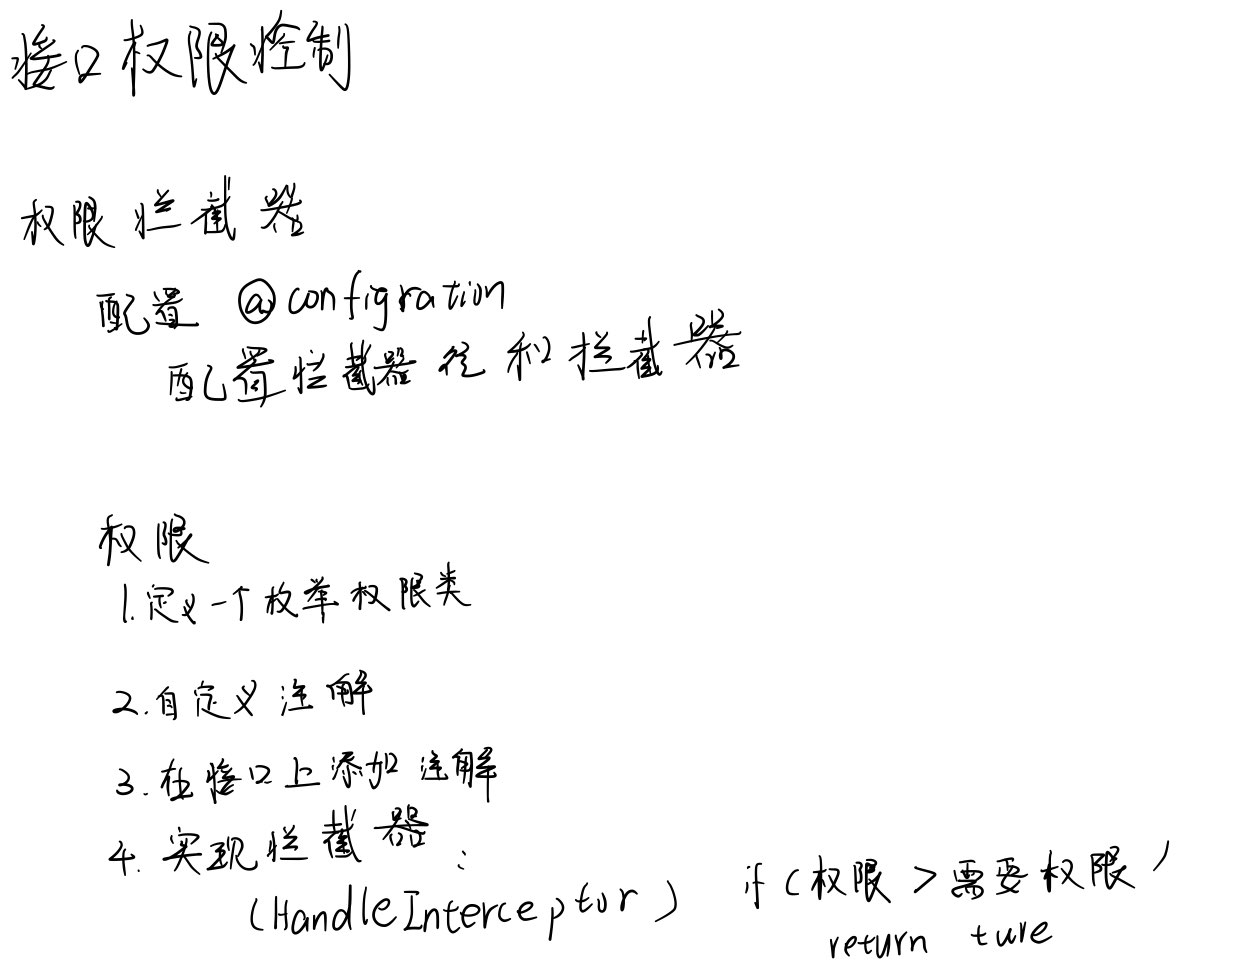 接口权限控制
权限拦截器
配置 @configration
配置拦截器 和拦截器
权限
1.定义一个枚举权限类
2.自定义注解
3.在接口上添加注解
4.实现拦截器:
(HandleInterceptor) if(权限>需要权限)
return ture